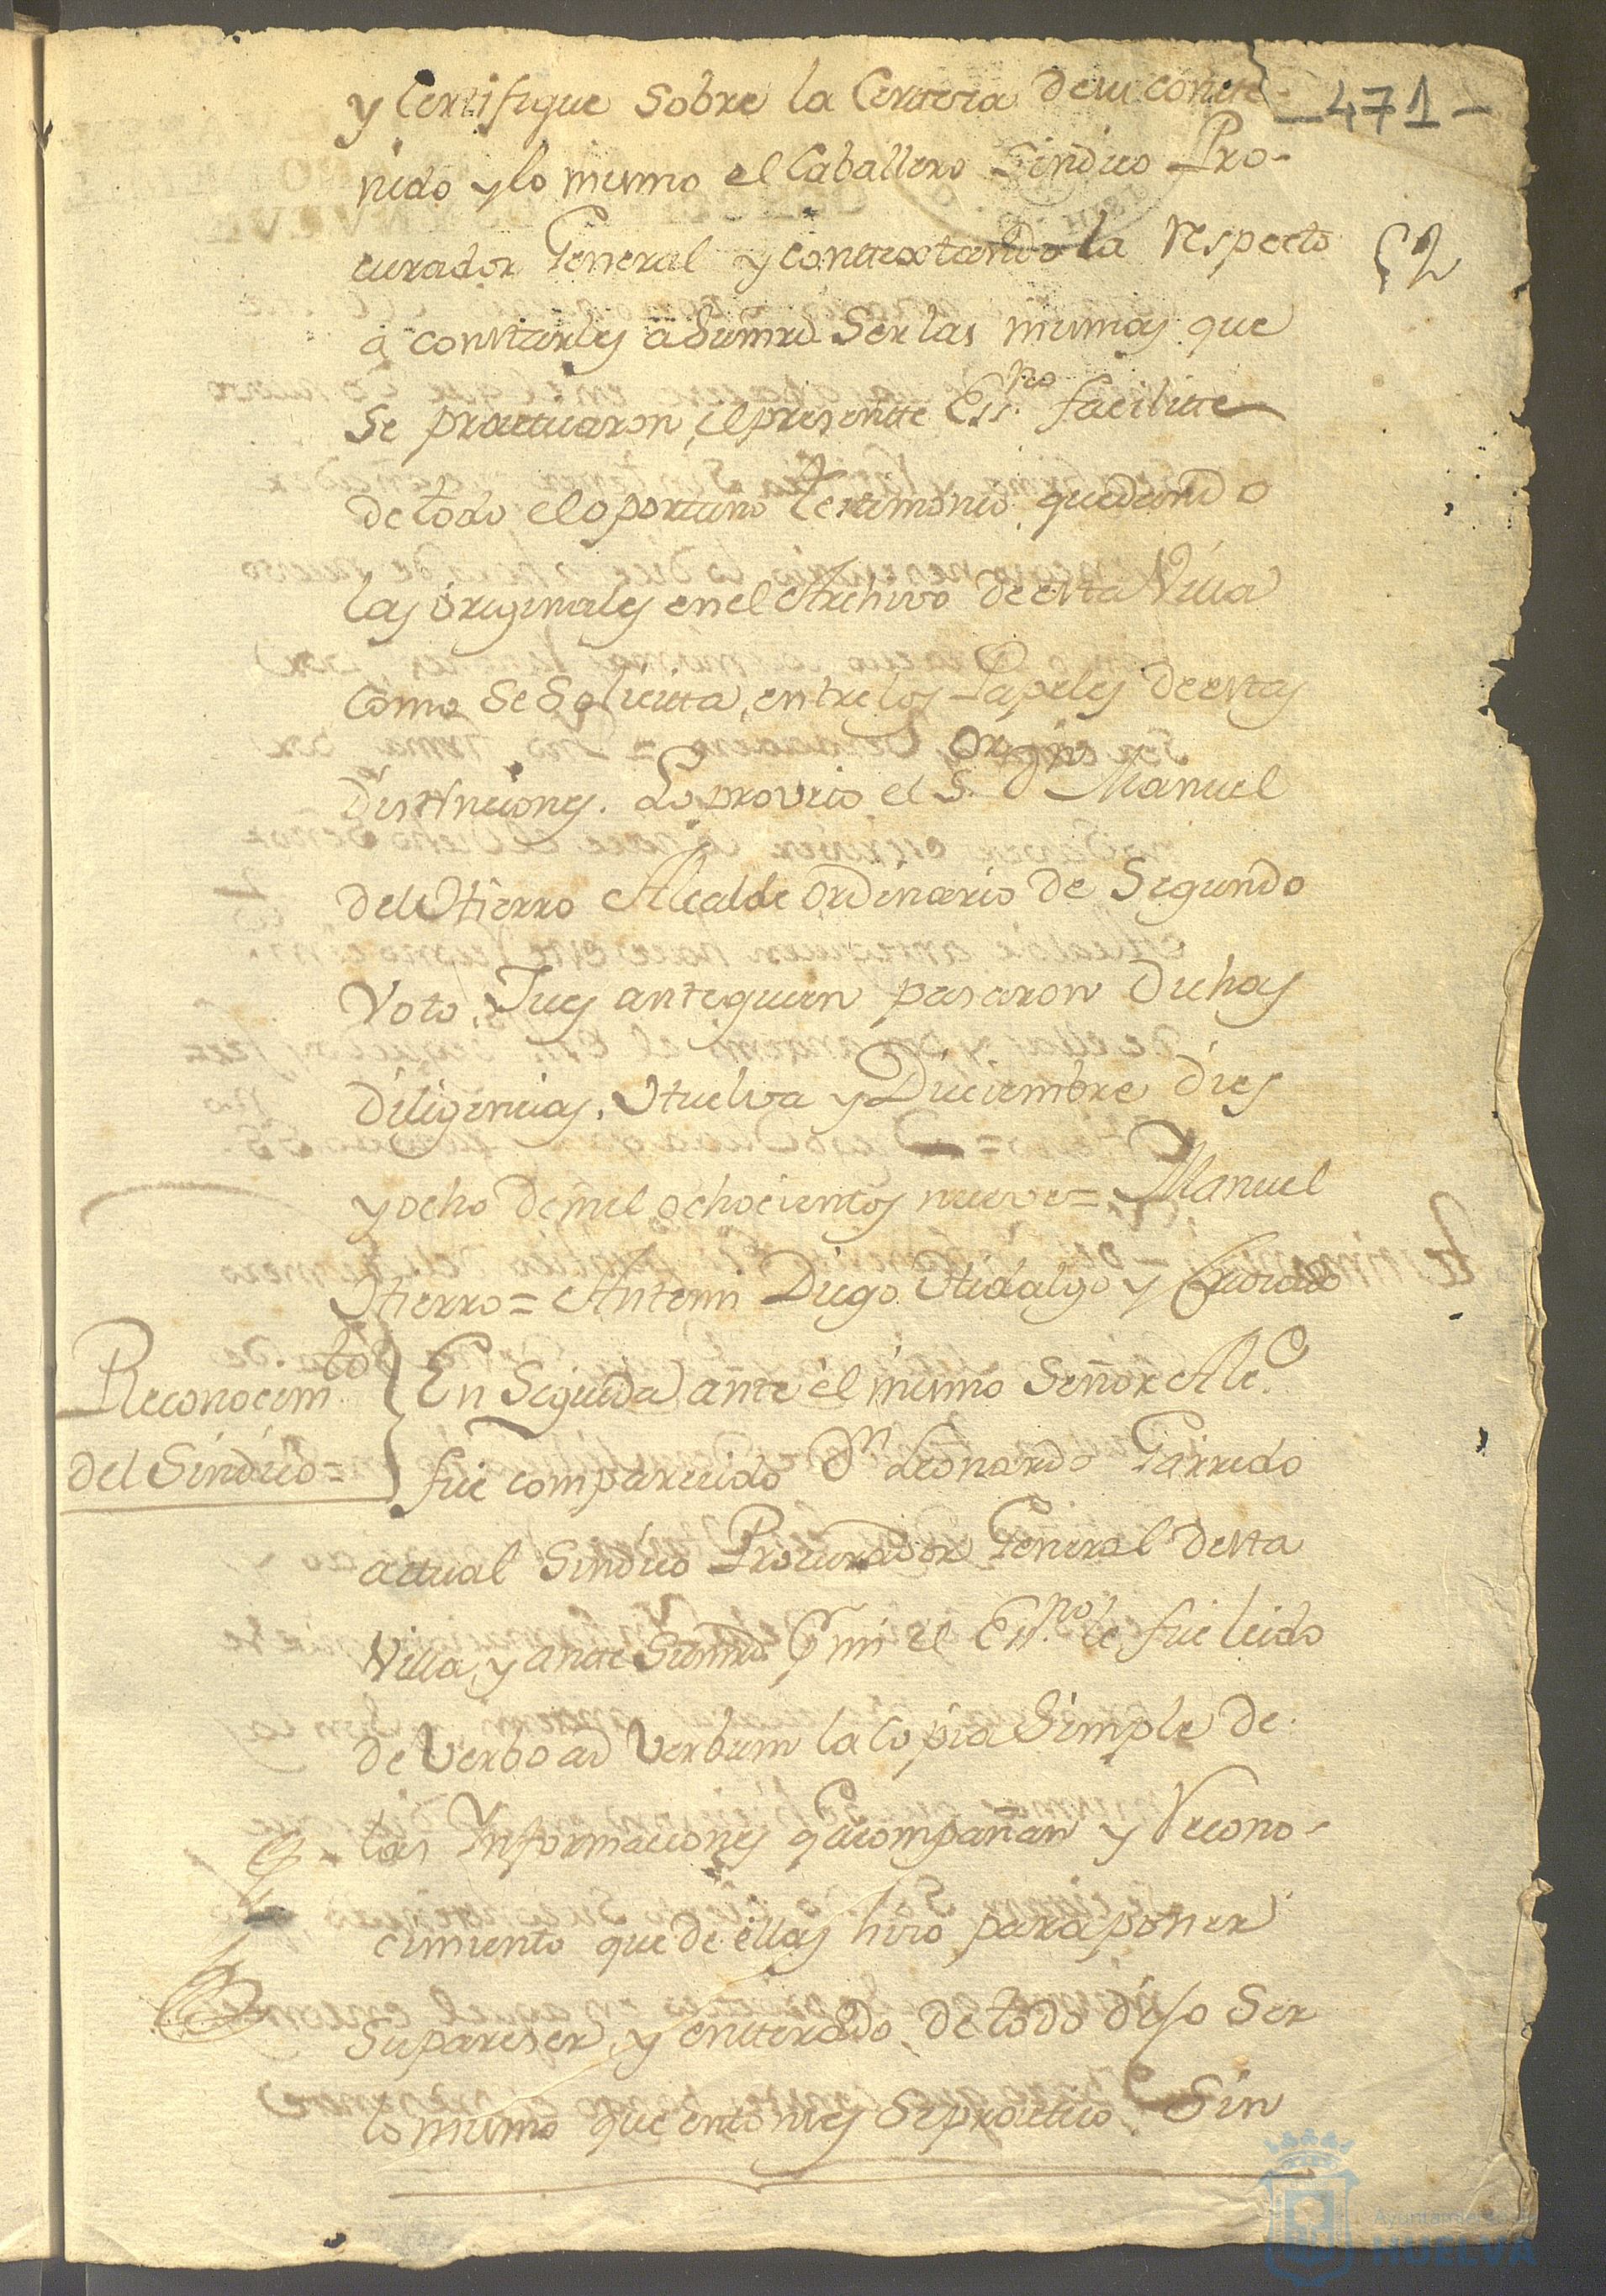 y Certifique Sobre la Certeza de su conte-
-471-
nido y lo mismo el Caballero Sindico Pro-
curador General y contextandola respecto
52
a constarles a Sumrd. Ser las mismas que
Se practicaron, el presente Essno. facilite
de todo el oportuno testimonio, quedando
las originales en el Archivo de esta Villa
Como Se Solicita, entre los Papeles de estas
Distinciones. Lo proveio el S. Dn Manuel
del Hierro Alcalde ordinario de Segundo
Voto, Jues ante quien pasaron dichas
diligencias. Huelva y Diciembre dies
y ocho de mil ochocientos nueve = Manuel
Hierro = Antemi Diego Hidalgo y
Reconocimto
del Sindico =
En Seguida ante el mismo Señor Alce.
fue comparecido Dn Leonardo Garrido
actual Sindico Procurador General desta
Villa, y ante Sumrd. y mi el Essno. le fue leido
de Verbo ad Verbum la Copia Simple de
las Informaciones q acompañan y recono-
cimiento que de ellas hizo para poner
Su pareser, y enterado de todo dijo Ser
lo mismo que entonces Se practico Sin
Ayuntamiento de
HUELVA